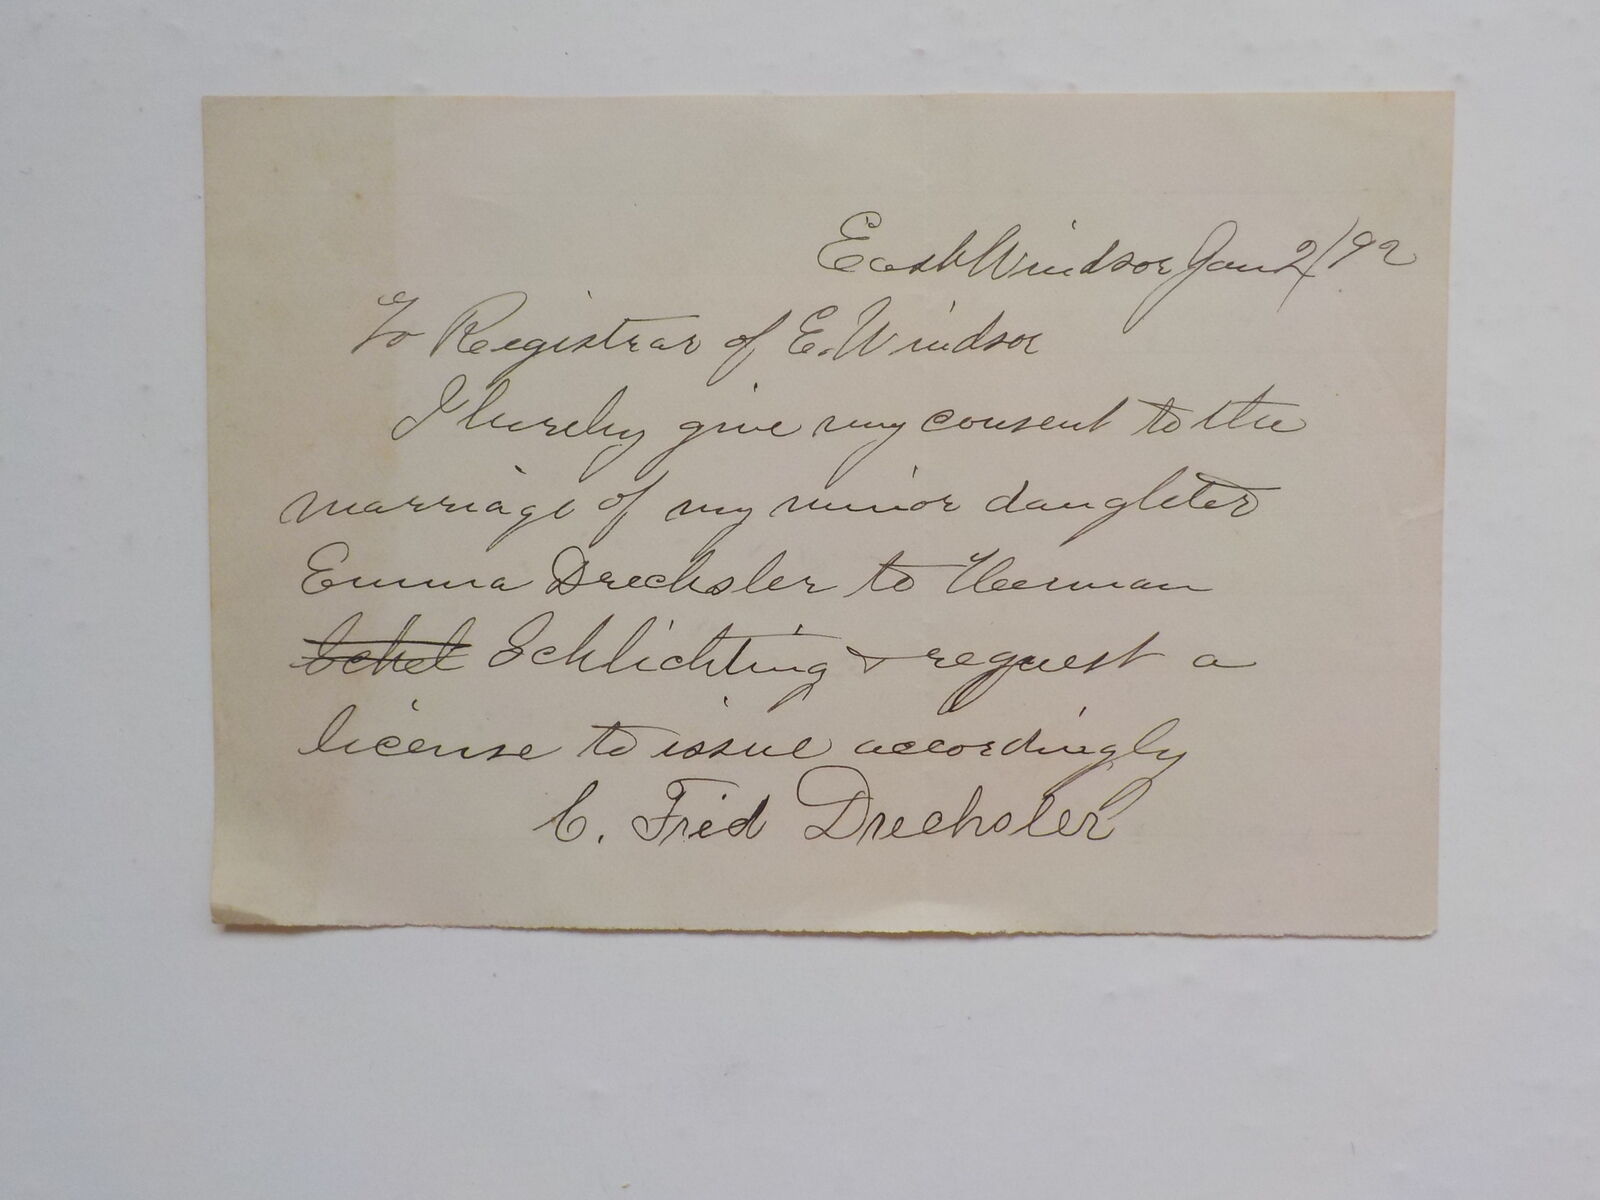 East Windsor Jan 2/92
To Registrar of E. Windsor
I hereby give my consent to the
marriage of my minor daughter
Emma Drechsler to Herman
Schel Schlichting & request a
license to issue accordingly
C. Fred Drechsler